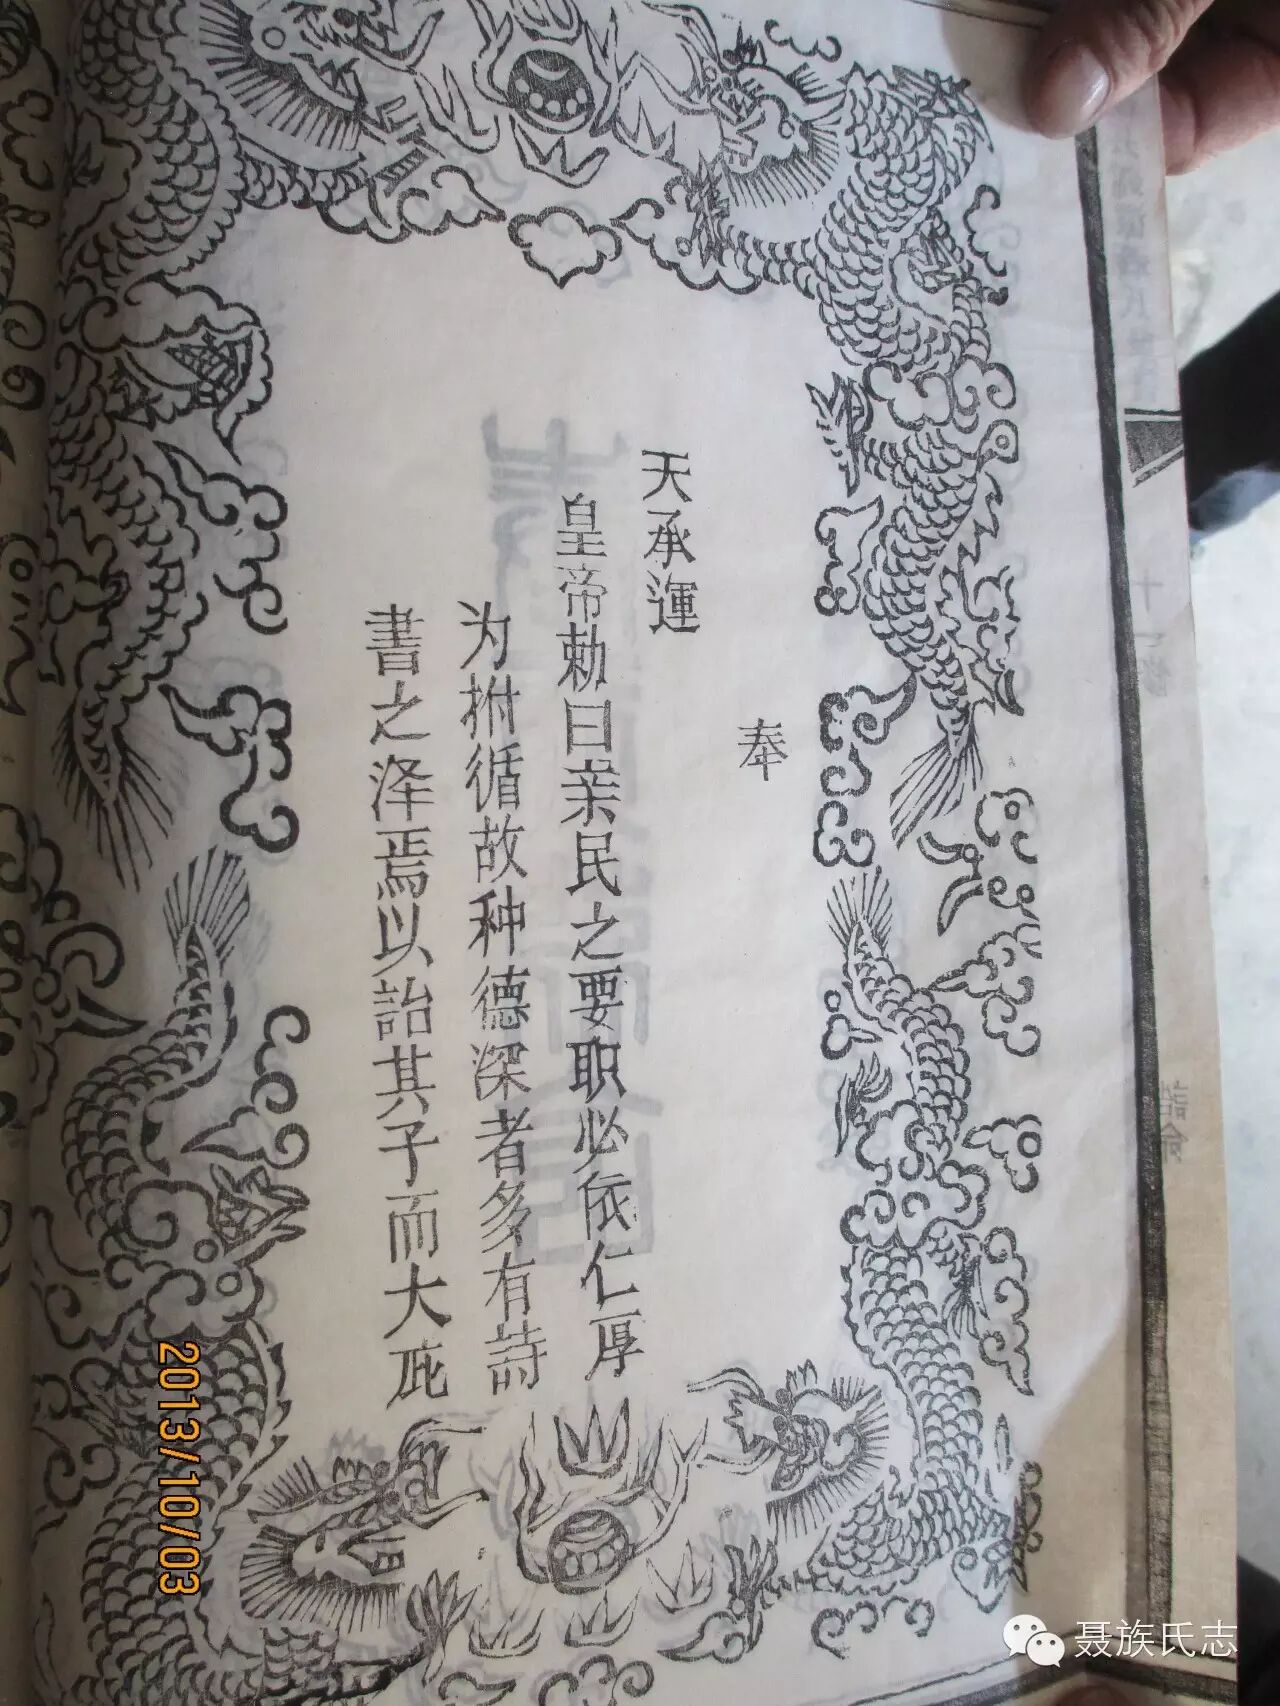 奉
天承運
皇帝勅曰亲民之要职必依仁厚
为拊循故种德深者多有詩
書之泽焉以詒其子而大庇
誥命
2013/10/03
聂族氏志